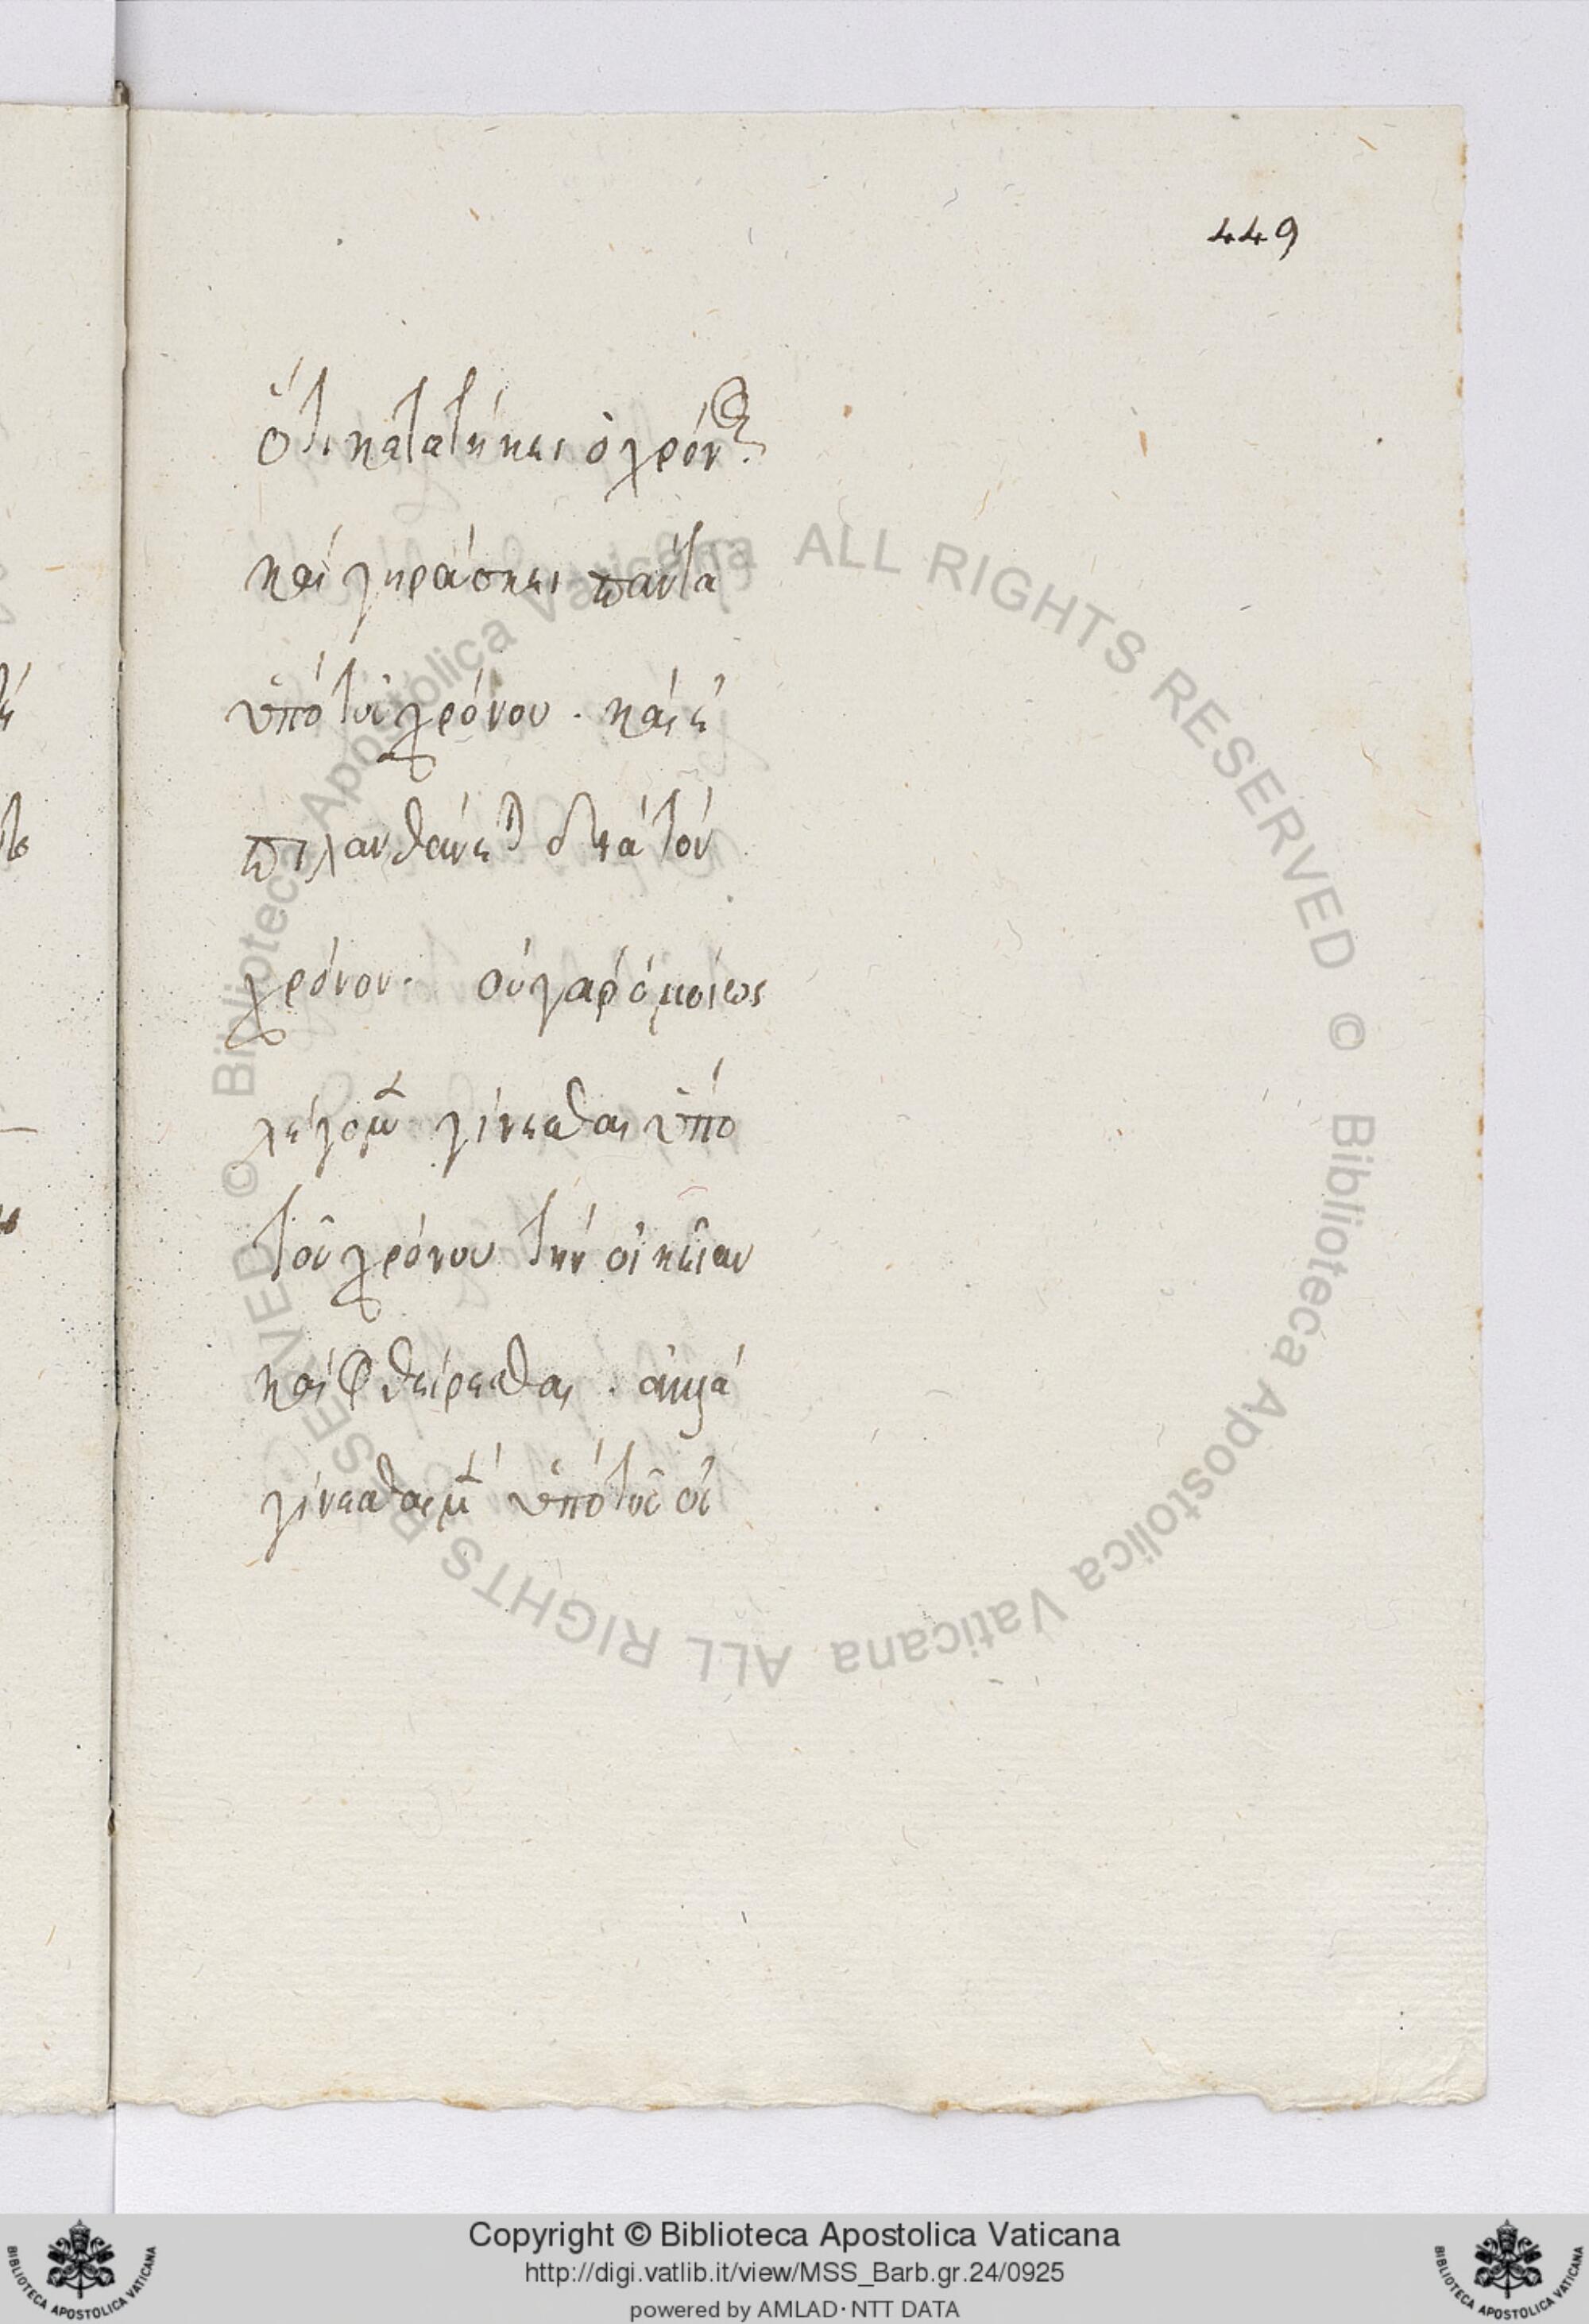 449
ὅτι κατατήκει ὁ χρόνος.
καὶ γηράσκει πάντα
ὑπὸ τοῦ χρόνου. καὶ ἐ
πιλανθάνεται διὰ τὸν
χρόνον. οὐ γὰρ ὁμοίως
λέγομεν γίνεσθαι ὑπὸ
τοῦ χρόνου τὴν οἰκείαν
καὶ φθείρεσθαι. ἀλλὰ
γίνεσθαι μὲν ὑπὸ τοῦ οἰ
© Biblioteca Apostolica Vaticana ALL RIGHTS RESERVED © Biblioteca Apostolica Vaticana ALL RIGHTS RESERVED
Copyright © Biblioteca Apostolica Vaticana
http://digi.vatlib.it/view/MSS_Barb.gr.24/0925
powered by AMLAD · NTT DATA
BIBLIOTECA APOSTOLICA VATICANA
BIBLIOTECA APOSTOLICA VATICANA